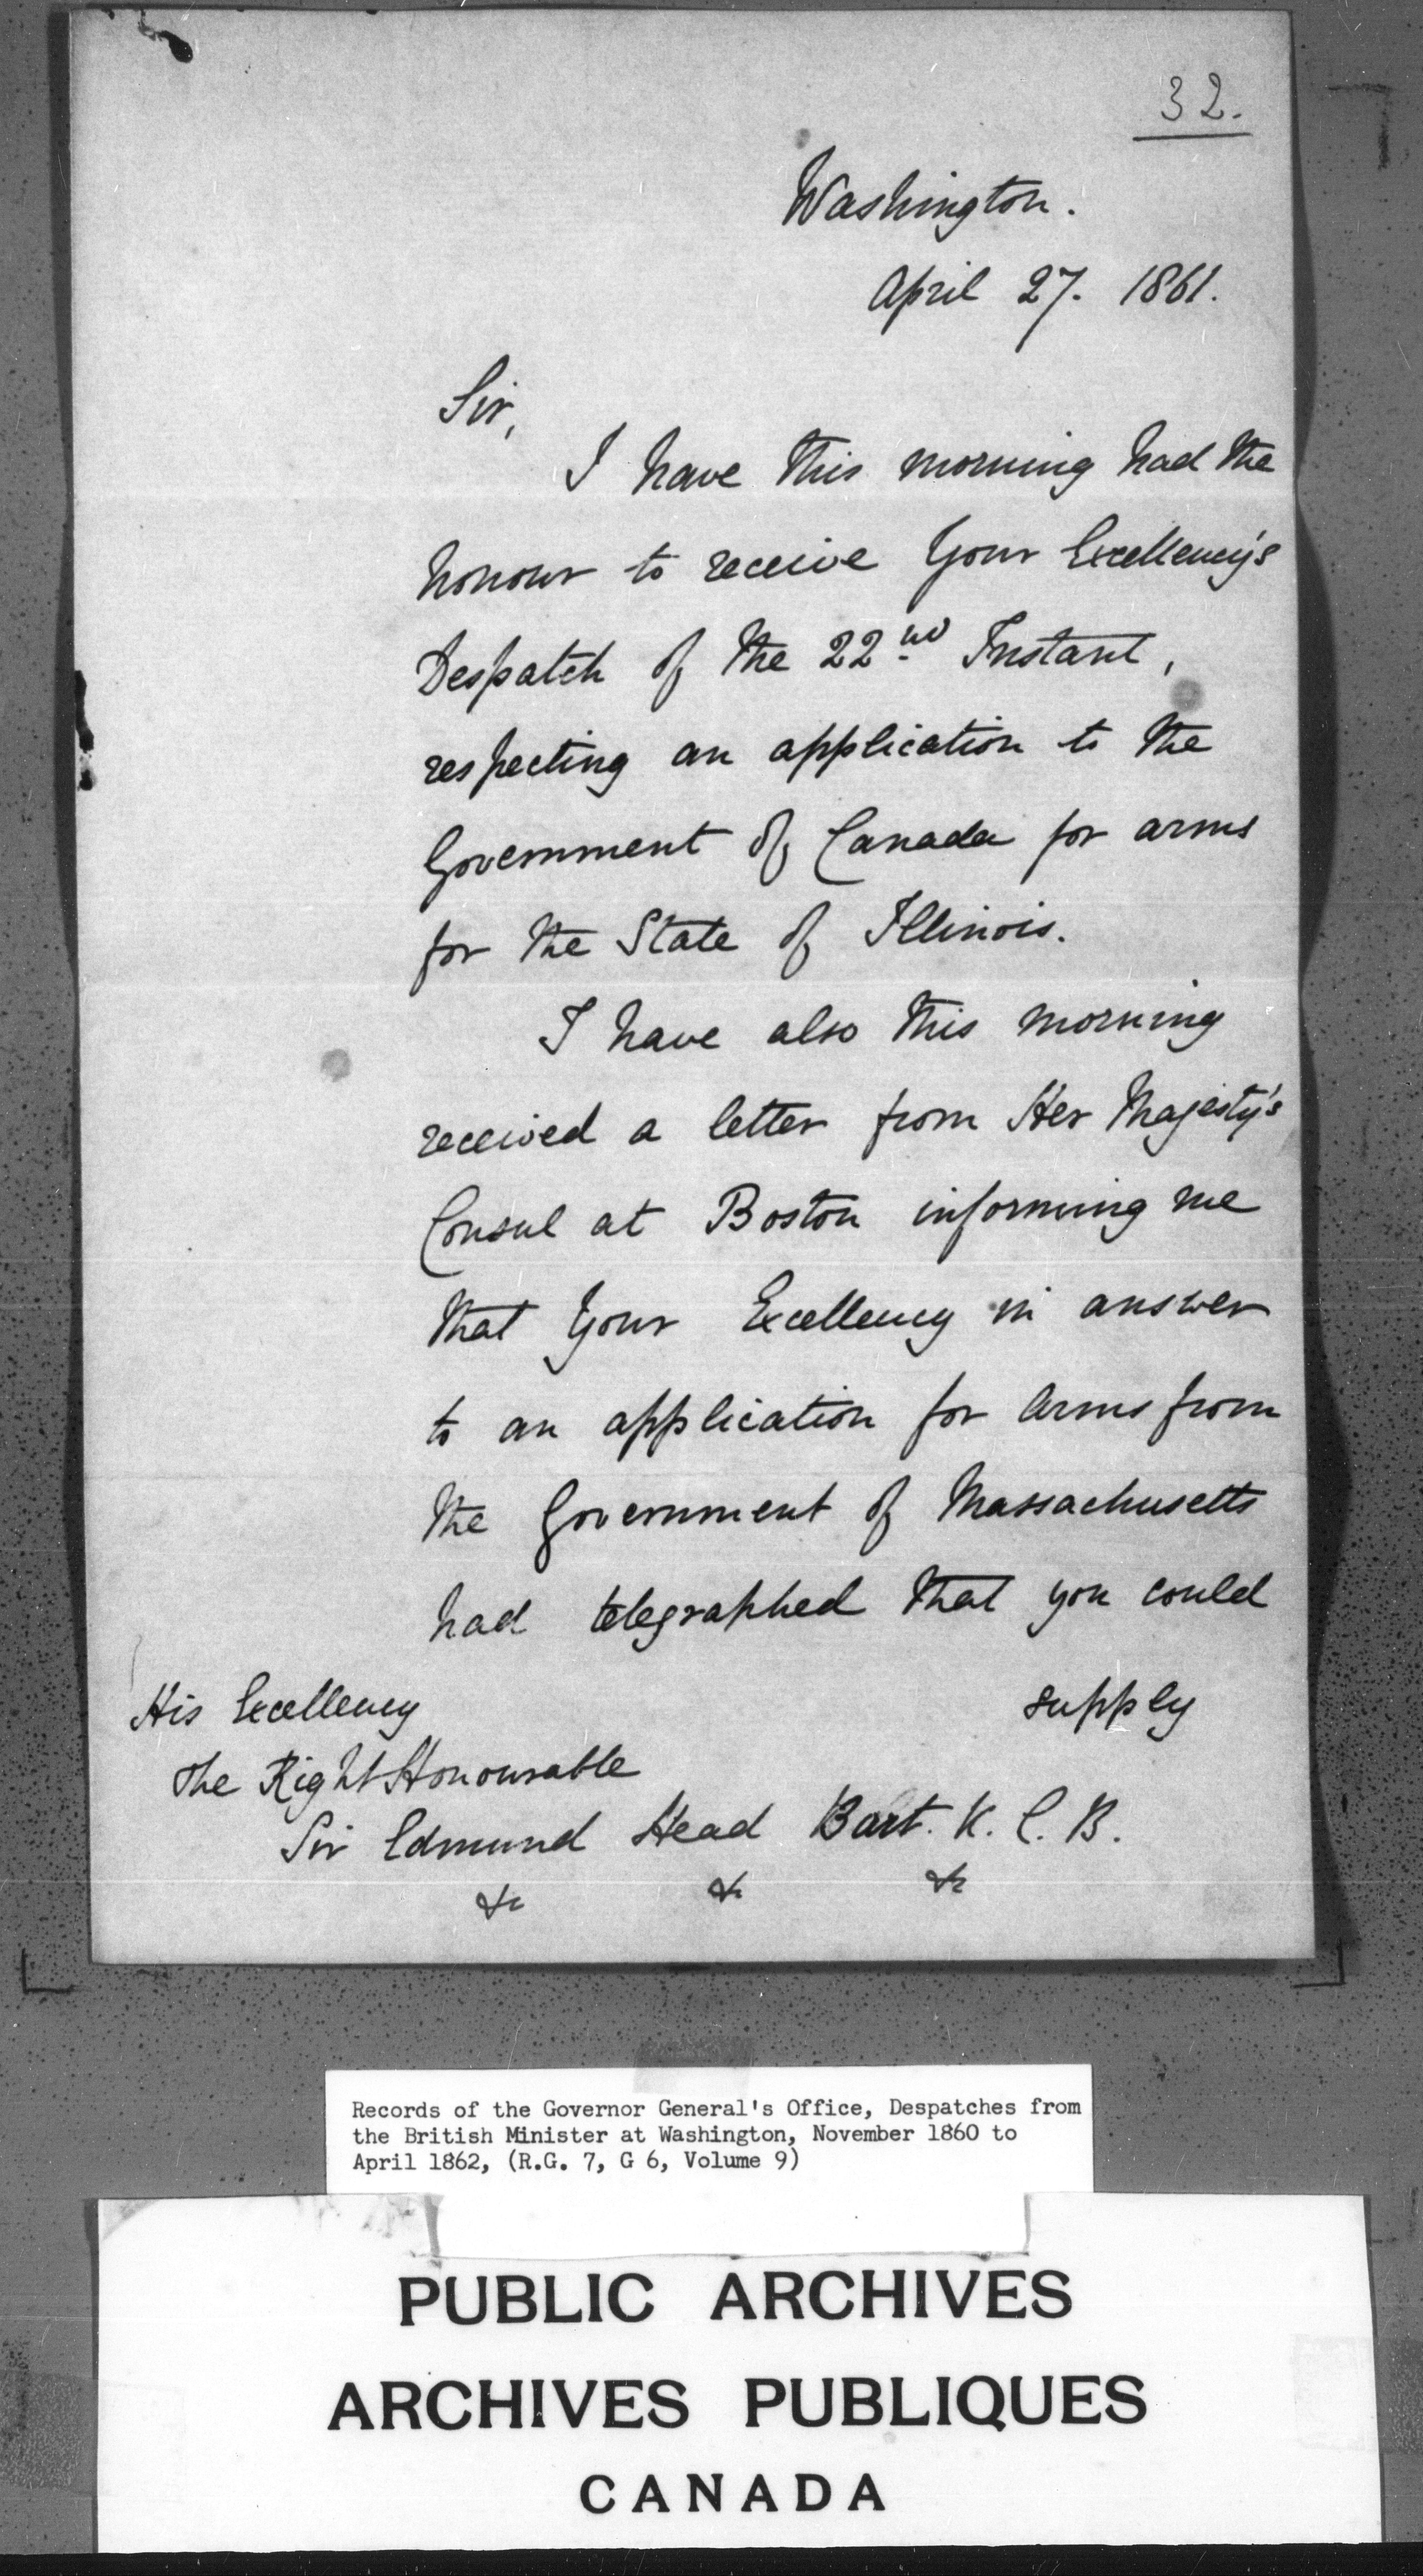 32.
Washington.
April 27. 1861.
Sir,
I have this morning had the
honour to receive Your Excellency's
Despatch of the 22nd Instant,
respecting an application to the
Government of Canada for arms
for the State of Illinois.
I have also this morning
received a letter from Her Majesty's
Consul at Boston informing me
that Your Excellency in answer
to an application for Arms from
the Government of Massachusetts
had telegraphed that you could
supply
His Excellency
The Right Honourable
Sir Edmund Head Bart. K. C. B.
&c &c &c
Records of the Governor General's Office, Despatches from
the British Minister at Washington, November 1860 to
April 1862, (R.G. 7, G 6, Volume 9)
PUBLIC ARCHIVES
ARCHIVES PUBLIQUES
CANADA